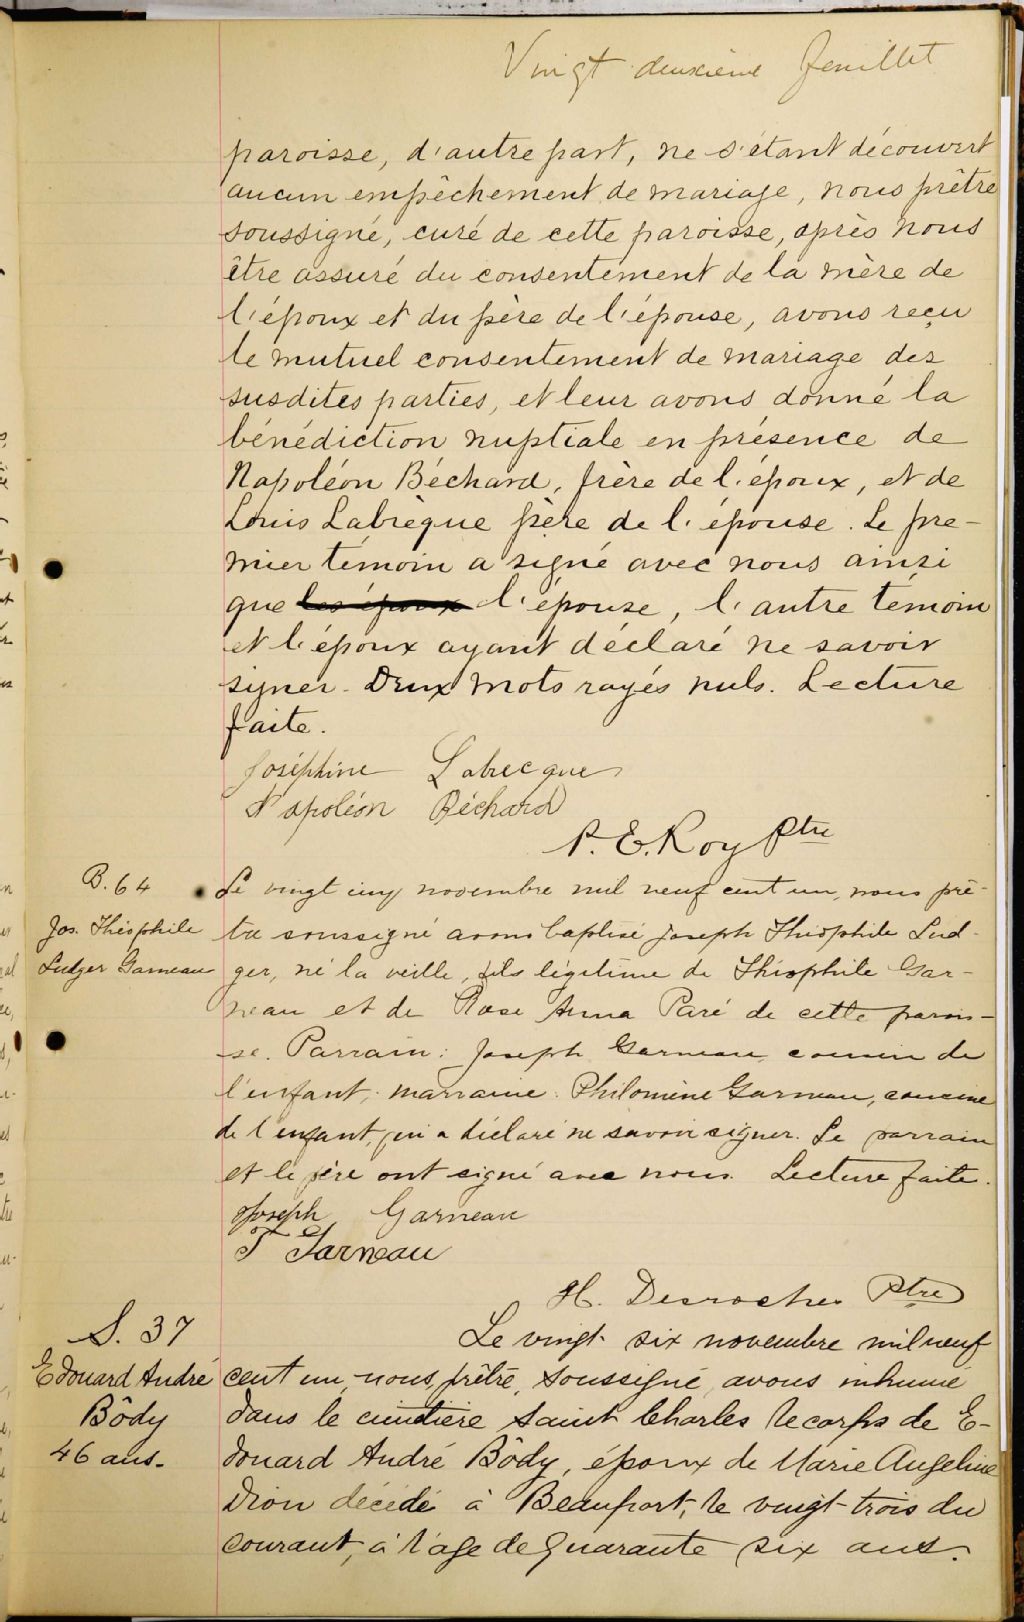 Vingt deuxième feuillet
paroisse, d'autre part, ne s'étant découvert
aucun empêchement de mariage, nous prêtre
soussigné, curé de cette paroisse, après nous
être assuré du consentement de la mère de
l'époux et du père de l'épouse, avons reçu
le mutuel consentement de mariage des
susdites parties, et leur avons donné la
bénédiction nuptiale en présence de
Napoléon Béchard, frère de l'époux, et de
Louis Labrèque père de l'épouse. Le pre-
mier témoin a signé avec nous ainsi
que les époux l'épouse, l'autre témoin
et l'époux ayant déclaré ne savoir
signer. Deux mots rayés nuls. Lecture
faite.
Joséphine Labrecque
Napoléon Béchard
P. E. Roy Ptre
B. 64
Jos. Théophile
Ludger Garneau
Le vingt cinq novembre mil neuf cent un, nous prê-
tre soussigné avons baptisé Joseph Théophile Lud-
ger, né la veille, fils légitime de Théophile Gar-
neau et de Rose Anna Paré de cette parois-
se. Parrain: Joseph Garneau cousin de
l'enfant; marraine: Philomène Garneau, cousine
de l'enfant, qui a déclaré ne savoir signer. Le parrain
et le père ont signé avec nous. Lecture faite.
Joseph Garneau
T Garneau
H. Desroches Ptre
S. 37
Edouard André
Bôdy
46 ans.
Le vingt six novembre mil neuf
cent un, nous, prêtre, soussigné avons inhumé
dans le cimetière Saint Charles le corps de E-
douard André Bôdy, époux de Marie Angeline
Dion décédé à Beauport, le vingt-trois du
courant, à l'age de quarante six ans.